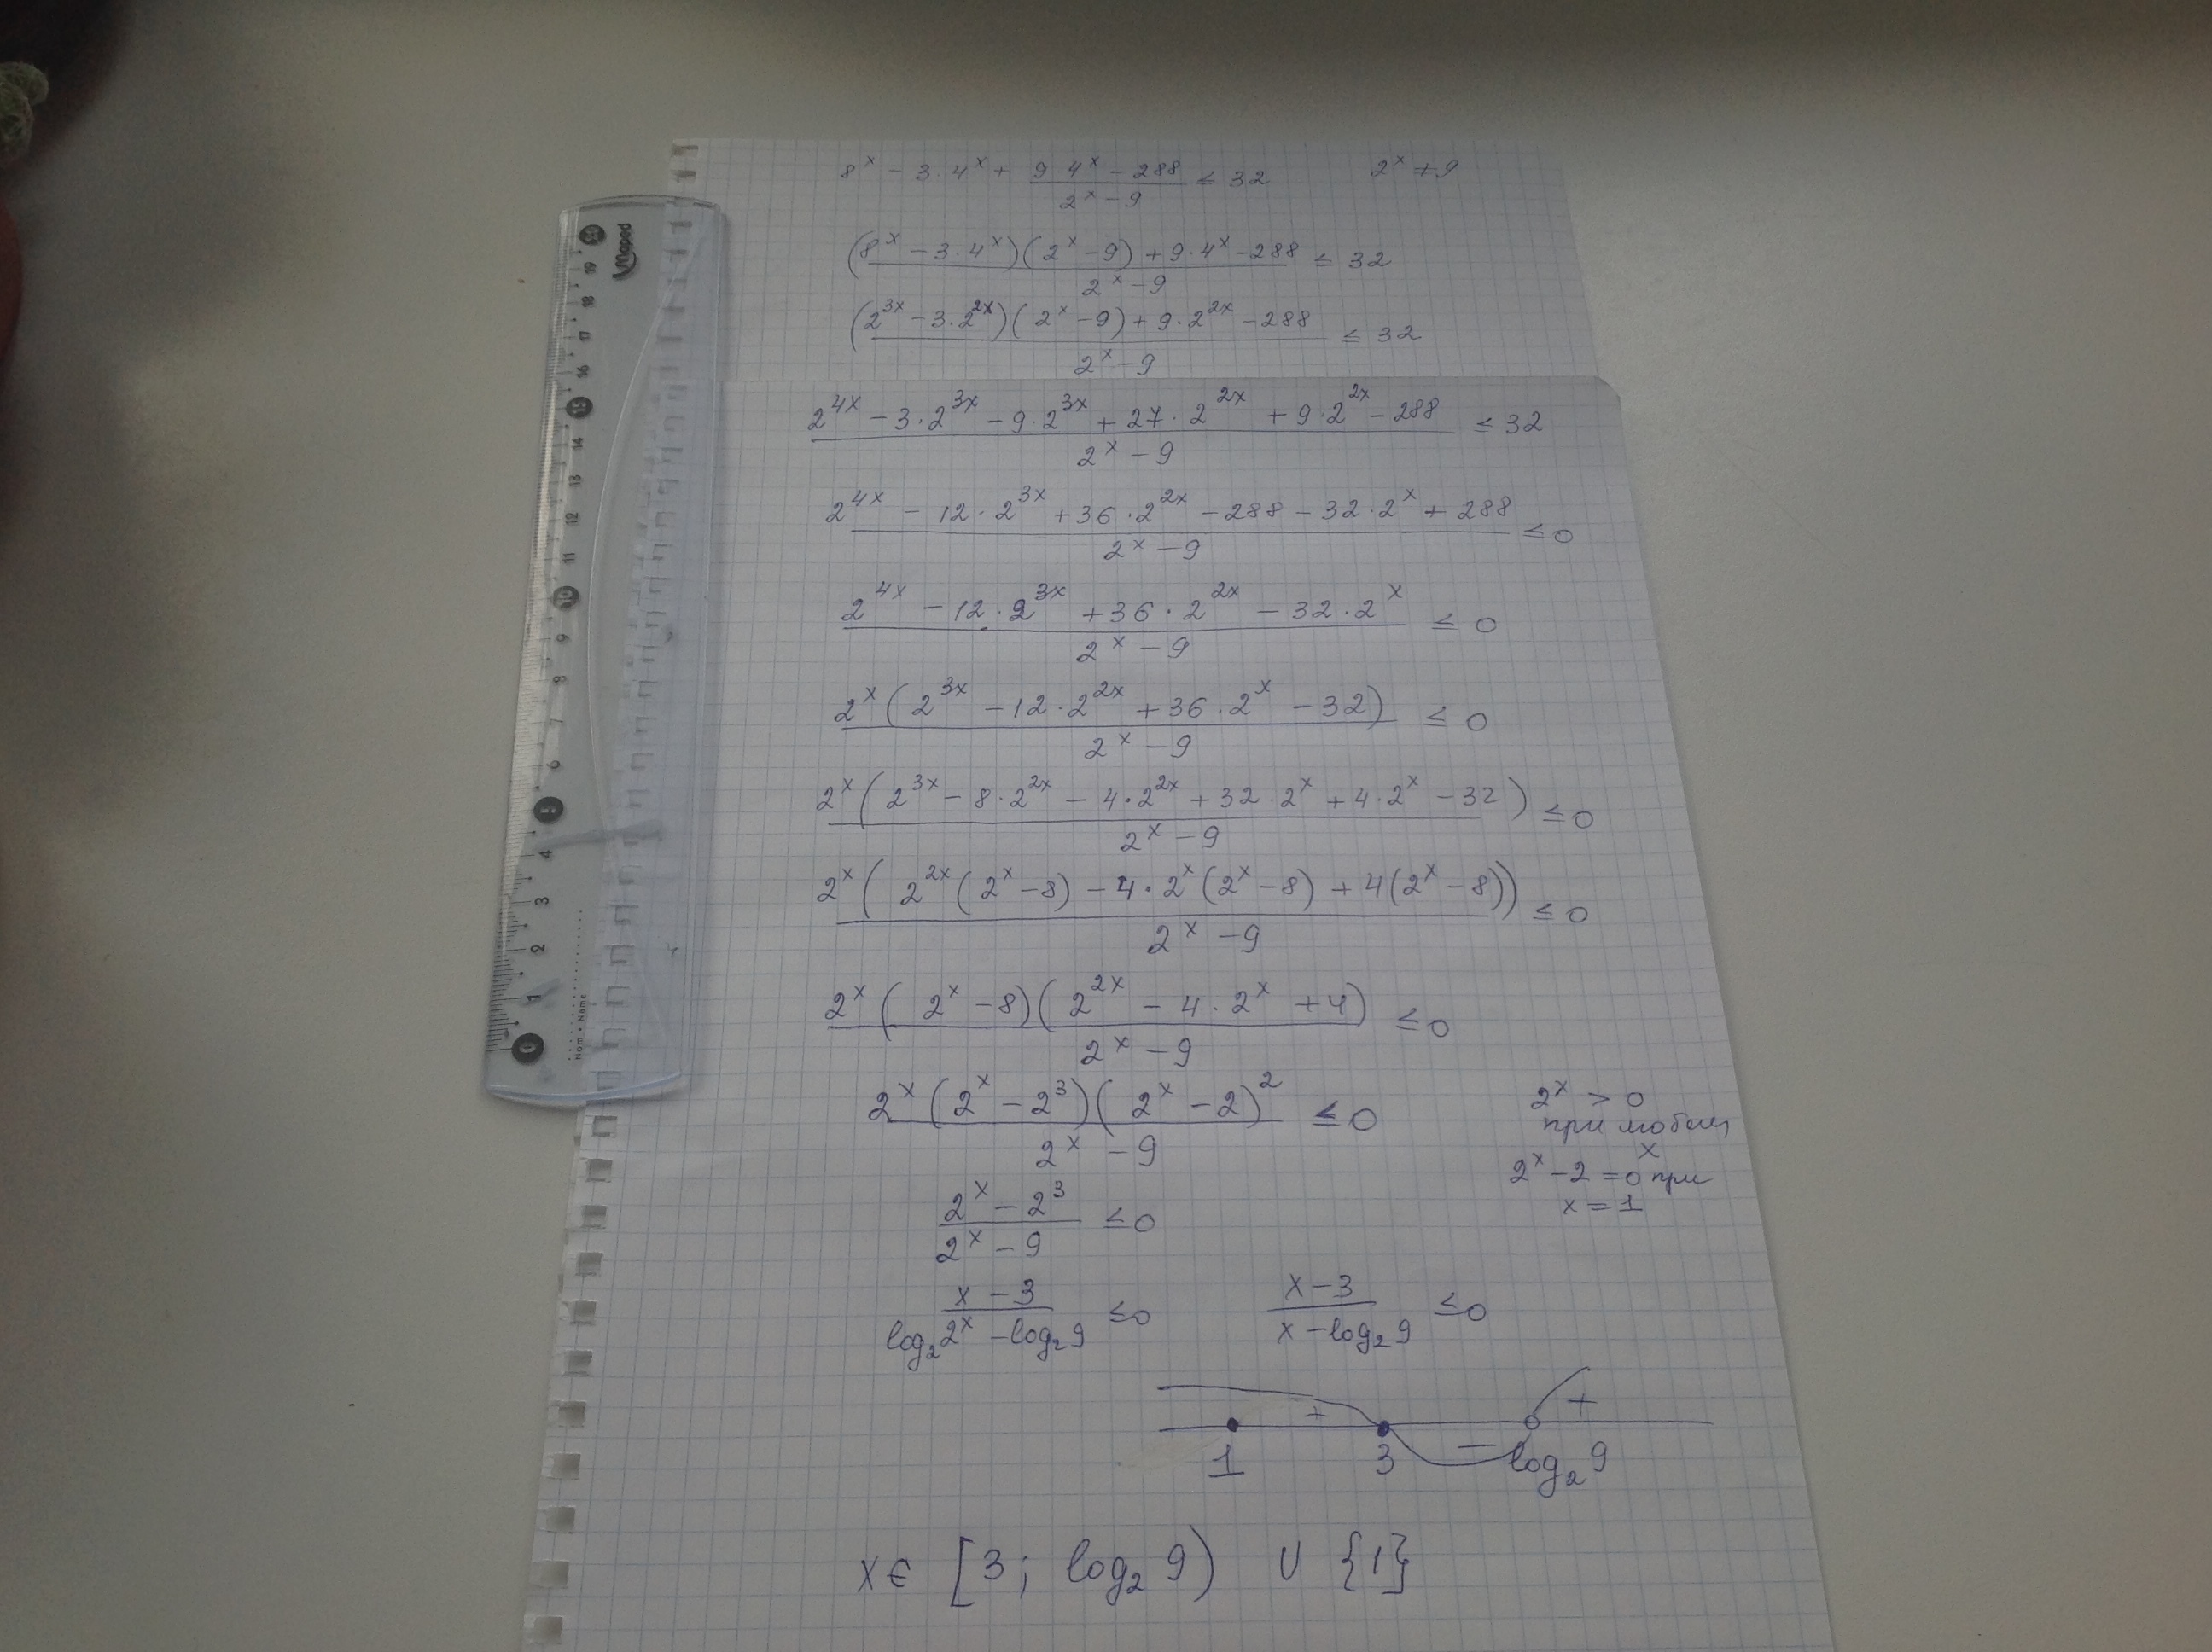 8^x - 3·4^x + (9·4^x - 288)/(2^x - 9) ≤ 32
2^x + 9
((8^x - 3·4^x)(2^x - 9) + 9·4^x - 288)/(2^x - 9) ≤ 32
((2^{3x} - 3·2^{2x})(2^x - 9) + 9·2^{2x} - 288)/(2^x - 9) ≤ 32
(2^{4x} - 3·2^{3x} - 9·2^{3x} + 27·2^{2x} + 9·2^{2x} - 288)/(2^x - 9) ≤ 32
(2^{4x} - 12·2^{3x} + 36·2^{2x} - 288 - 32·2^x + 288)/(2^x - 9) ≤ 0
(2^{4x} - 12·2^{3x} + 36·2^{2x} - 32·2^x)/(2^x - 9) ≤ 0
2^x(2^{3x} - 12·2^{2x} + 36·2^x - 32)/(2^x - 9) ≤ 0
2^x(2^{3x} - 8·2^{2x} - 4·2^{2x} + 32·2^x + 4·2^x - 32)/(2^x - 9) ≤ 0
2^x(2^{2x}(2^x - 8) - 4·2^x(2^x - 8) + 4(2^x - 8))/(2^x - 9) ≤ 0
2^x(2^x - 8)(2^{2x} - 4·2^x + 4)/(2^x - 9) ≤ 0
2^x(2^x - 2^3)(2^x - 2)^2/(2^x - 9) ≤ 0
2^x > 0
при любом
x
2^x - 2 = 0 при
x = 1
(2^x - 2^3)/(2^x - 9) ≤ 0
(x - 3)/(log_2 2^x - log_2 9) ≤ 0
(x - 3)/(x - log_2 9) ≤ 0
+ − +
1 3 log_2 9
x ∈ [3; log_2 9) ∪ {1}
Maped
Nom • Name
0 1 2 3 4 5 6 7 8 9 10 11 12 13 14 15 16 17 18 19 20